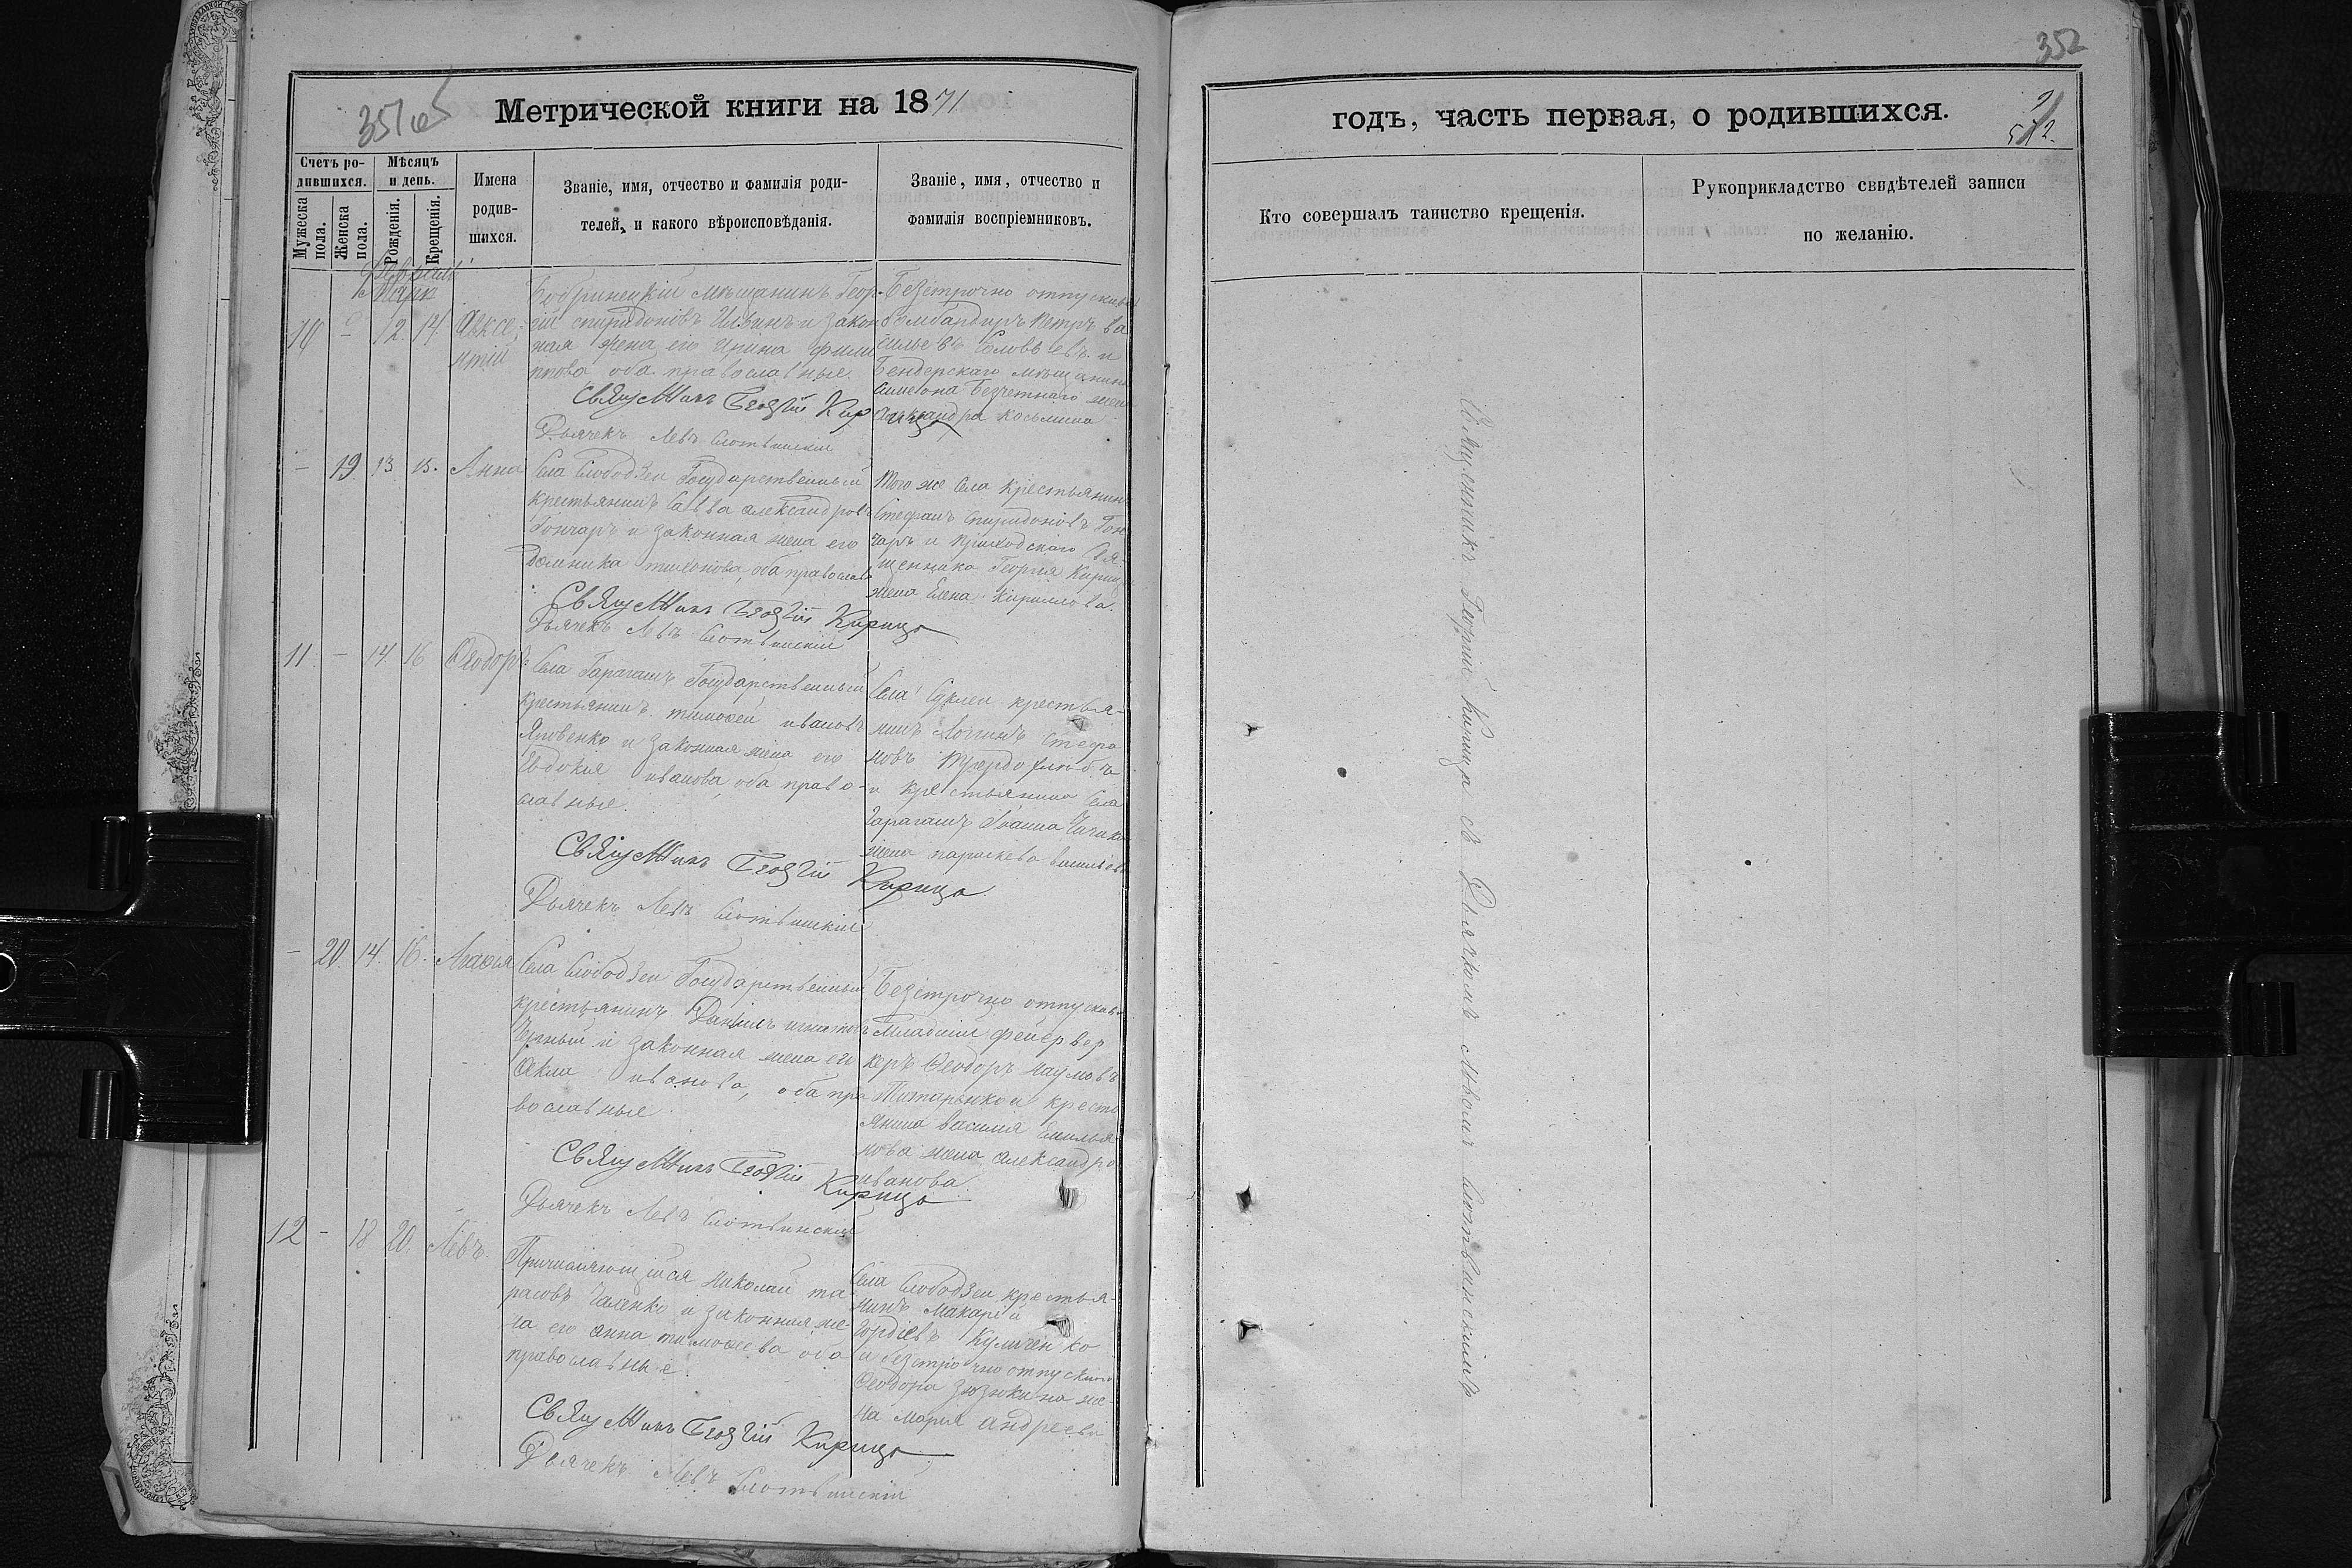 351об
Метрической книги на 1871
Счетъ ро-
дившихся.
Мѣсяцъ
и день.
Мужеска
пола.
Женска
пола.
Рожденія.
Крещенія.
Имена
родив-
шихся.
Званіе, имя, отчество и фамилія роди-
телей, и какого вѣроисповѣданія.
Званіе, имя, отчество и
фамилія воспріемниковъ.
Февраль
10 - 12. 14. Авксе-
нтій
Бобринецкій мѣщанинъ Геор-
гій спиридоновъ и закон
ная жена его Ирина фили
ппова оба православные.
Священикъ Георгій Кирица
Дьячекъ Левъ Слотвинскій
Безсрочно отпускной
бомбардиръ Петръ ва
сильевъ Соловьевъ и
Бендерскаго мѣщанина
Симеона Безчетнаго жена
александра косьмина
- 19. 13 15. Анна
Села Слободзеи Государственный
крестьянинъ Савва александровъ
Гончаръ и законная жена его
Домника тихонова, оба православ
Священикъ Георгій Кирица
Дьячекъ Левъ Слотвинскій
Того же Села крестьянинъ
Стефанъ Спиридоновъ Гон
чаръ и приходскаго Свя-
щенника Георгія Кириц
жена Елена Кириллова.
11. - 14 16 Ѳеодоръ
Села Карагашъ Государственный
крестьянинъ тимофей ивановъ
Яровенко и законная жена его
Евдокия иванова, оба право-
славные.
Священикъ Георгій Кирица
Дьячекъ Левъ Слотвинскій
Села Суклеи крестья-
нинъ Логинъ Стефа
новъ Твердохлебъ
и крестьянина Села
Карагашъ Іоанна
жена параскева васильев
- 20. 14. 16. Агафія
Села Слободзеи Государственный
крестьянинъ Даніилъ игнатовъ
Черный и законная жена его
Ѳекла иванова, оба пра
вославные
Священикъ Георгій Кирица
Дьячекъ Левъ Слотвинскій
Безсрочно отпускной
Младшій фейервер
керъ Ѳеодоръ Наумовъ
Титаренко и кресть
янина василия Емилья
нова жена александра
иванова.
12 - 18 20. Левъ.
Причисляющійся Николай та
расовъ Галенко и законная же-
на его анна тимофеева оба
православные.
Священикъ Георгій Кирица
Дьячекъ Левъ Слотвинскій
Села Слободзеи крестья-
нинъ Макарій
Гордіевъ Куличенко
и безсрочно отпускного
Ѳеодора Зюзюкина же-
на Марія андреева
352
годъ, часть первая, о родившихся.
Кто совершалъ таинство крещенія.
Рукоприкладство свидѣтелей записи
по желанію.
Священникъ Георгій Кирица съ Дьячкомъ Львомъ Слотвинскимъ